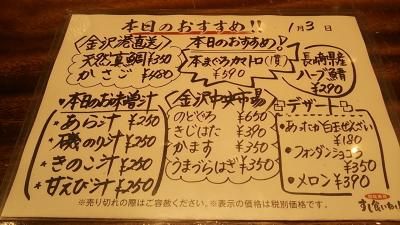 本日のおすすめ!!
1月3日
金沢港直送
天然真鯛 ¥350
かさご ¥480
本日のおすすめ!
本まぐろカマトロ(1貫)
¥590
長崎県産
ハーブ鯖
¥290
・本日のお味噌汁
★あら汁 ¥250
★磯のり汁 ¥250
★きのこ汁 ¥250
★甘えび汁 ¥250
金沢中央市場
のどぐろ ¥650
きじはた ¥390
かます ¥350
うまづらはぎ ¥350
デザート
・あったか白玉ぜんざい
¥180
・フォンダンショコラ
¥350
・メロン ¥390
※売り切れの際はご容赦ください。※表示の価格は税別価格です。